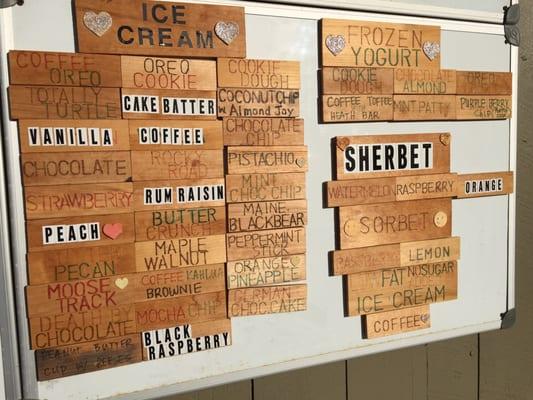 ICE
CREAM
COFFEE
OREO
OREO
COOKIE
COOKIE
DOUGH
TOTALLY
TURTLE
CAKE BATTER
COCONUT CHIP
w/ Almond Joy
VANILLA
COFFEE
CHOCOLATE
CHIP
CHOCOLATE
ROCKY
ROAD
PISTACHIO
STRAWBERRY
RUM RAISIN
MINT
CHOC CHIP
PEACH
BUTTER
CRUNCH
MAINE
BLACKBEAR
PECAN
MAPLE
WALNUT
PEPPERMINT
STICK
MOOSE
TRACK
COFFEE KAHLUA
BROWNIE
ORANGE
PINEAPPLE
DEATH BY
CHOCOLATE
MOCHA CHIP
GERMAN
CHOC. CAKE
PEANUT BUTTER
CUP W/
BLACK
RASPBERRY
FROZEN
YOGURT
COOKIE
DOUGH
CHOCOLATE
ALMOND
OREO
COFFEE TOFFEE
HEATH BAR
MINT PATTY
PURPLE BERRY
CHIP
SHERBET
WATERMELON
RASPBERRY
ORANGE
SORBET
RASPBERRY
LEMON
FAT
NO SUGAR
ICE CREAM
COFFEE